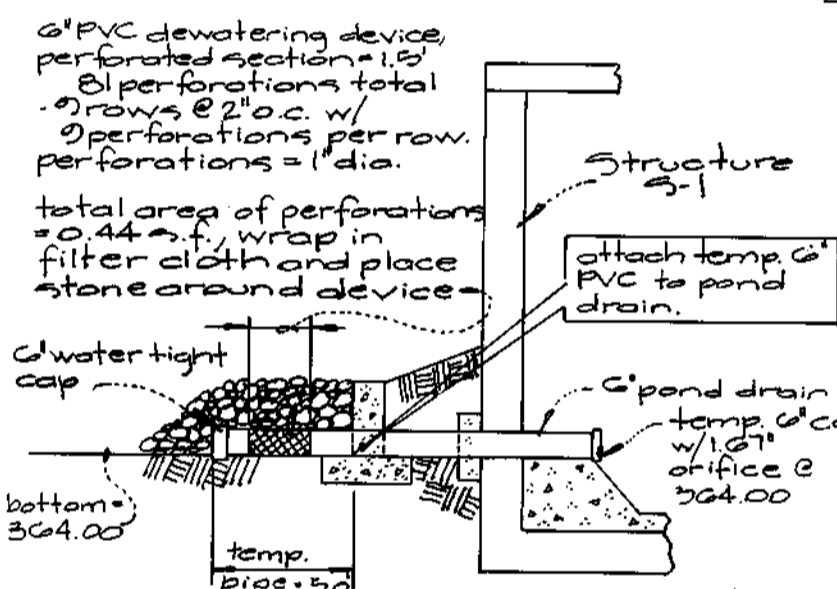 6" PVC dewatering device,
perforated section = 1.5'
81 perforations total
- 9 rows @ 2" o.c. w/
9 perforations per row.
perforations = 1" dia.
total area of perforations
= 0.44 s.f., wrap in
filter cloth and place
stone around device
Structure
S-1
attach temp. 6"
PVC to pond
drain.
6" water tight
cap
6" pond drain
temp. 6"
w/1.67"
orifice @
364.00
bottom =
364.00
temp.
pipe =